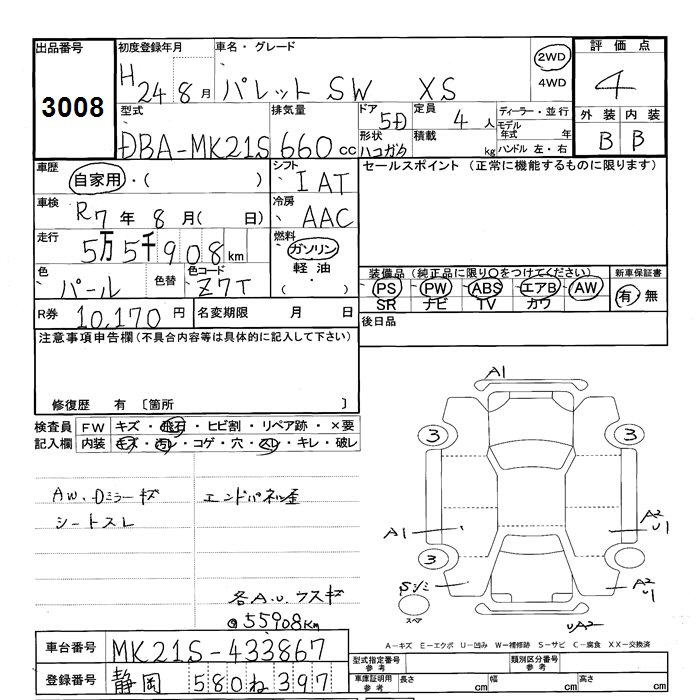 出品番号 初度登録年月 車名・グレード 2WD 評価点
3008 H24 8月 パレット SW XS 4WD 4
型式 排気量 ドア 5D 定員 4人 ディーラー・並行 外装 内装
DBA-MK21S 660cc 形状 ハコガタ 積載 kg モデル年式 年 ハンドル 左・右 B B
車歴 自家用・( ) シフト IAT セールスポイント(正常に機能するものに限ります)
車検 R7年 8月( 日) 冷房 AAC
走行 5万5千908km 燃料 ガソリン
軽油・( )
色 パール 色替 色コード Z7T 装備品(純正品に限り○をつけてください) 新車保証書
PS PW ABS エアB AW 有・無
SR ナビ TV カワ
R券 10,170円 名変期限 月 日 後日品
注意事項申告欄(不具合内容等は具体的に記入して下さい)
修復歴 有 〔箇所 〕
検査員 FW キズ・飛石・ヒビ割・リペア跡・×要
記入欄 内装 キズ・汚レ・コゲ・穴・スレ・キレ・破レ
AW、Dミラーキズ エンドパネル歪
シートスレ
各A.U.ウスキズ
@55908Km
A1
3 3
A1 A2 U1
3
Sシミ A2 U1
スペア
UA2
A-キズ E-エクボ U-凹み W-補修跡 S-サビ C-腐食 XX-交換済
車台番号 MK21S-433867 型式指定番号 参考 類別区分番号 参考
登録番号 静岡 580 ね 397 車庫証明用 参考 長さ cm 幅 cm 高さ cm